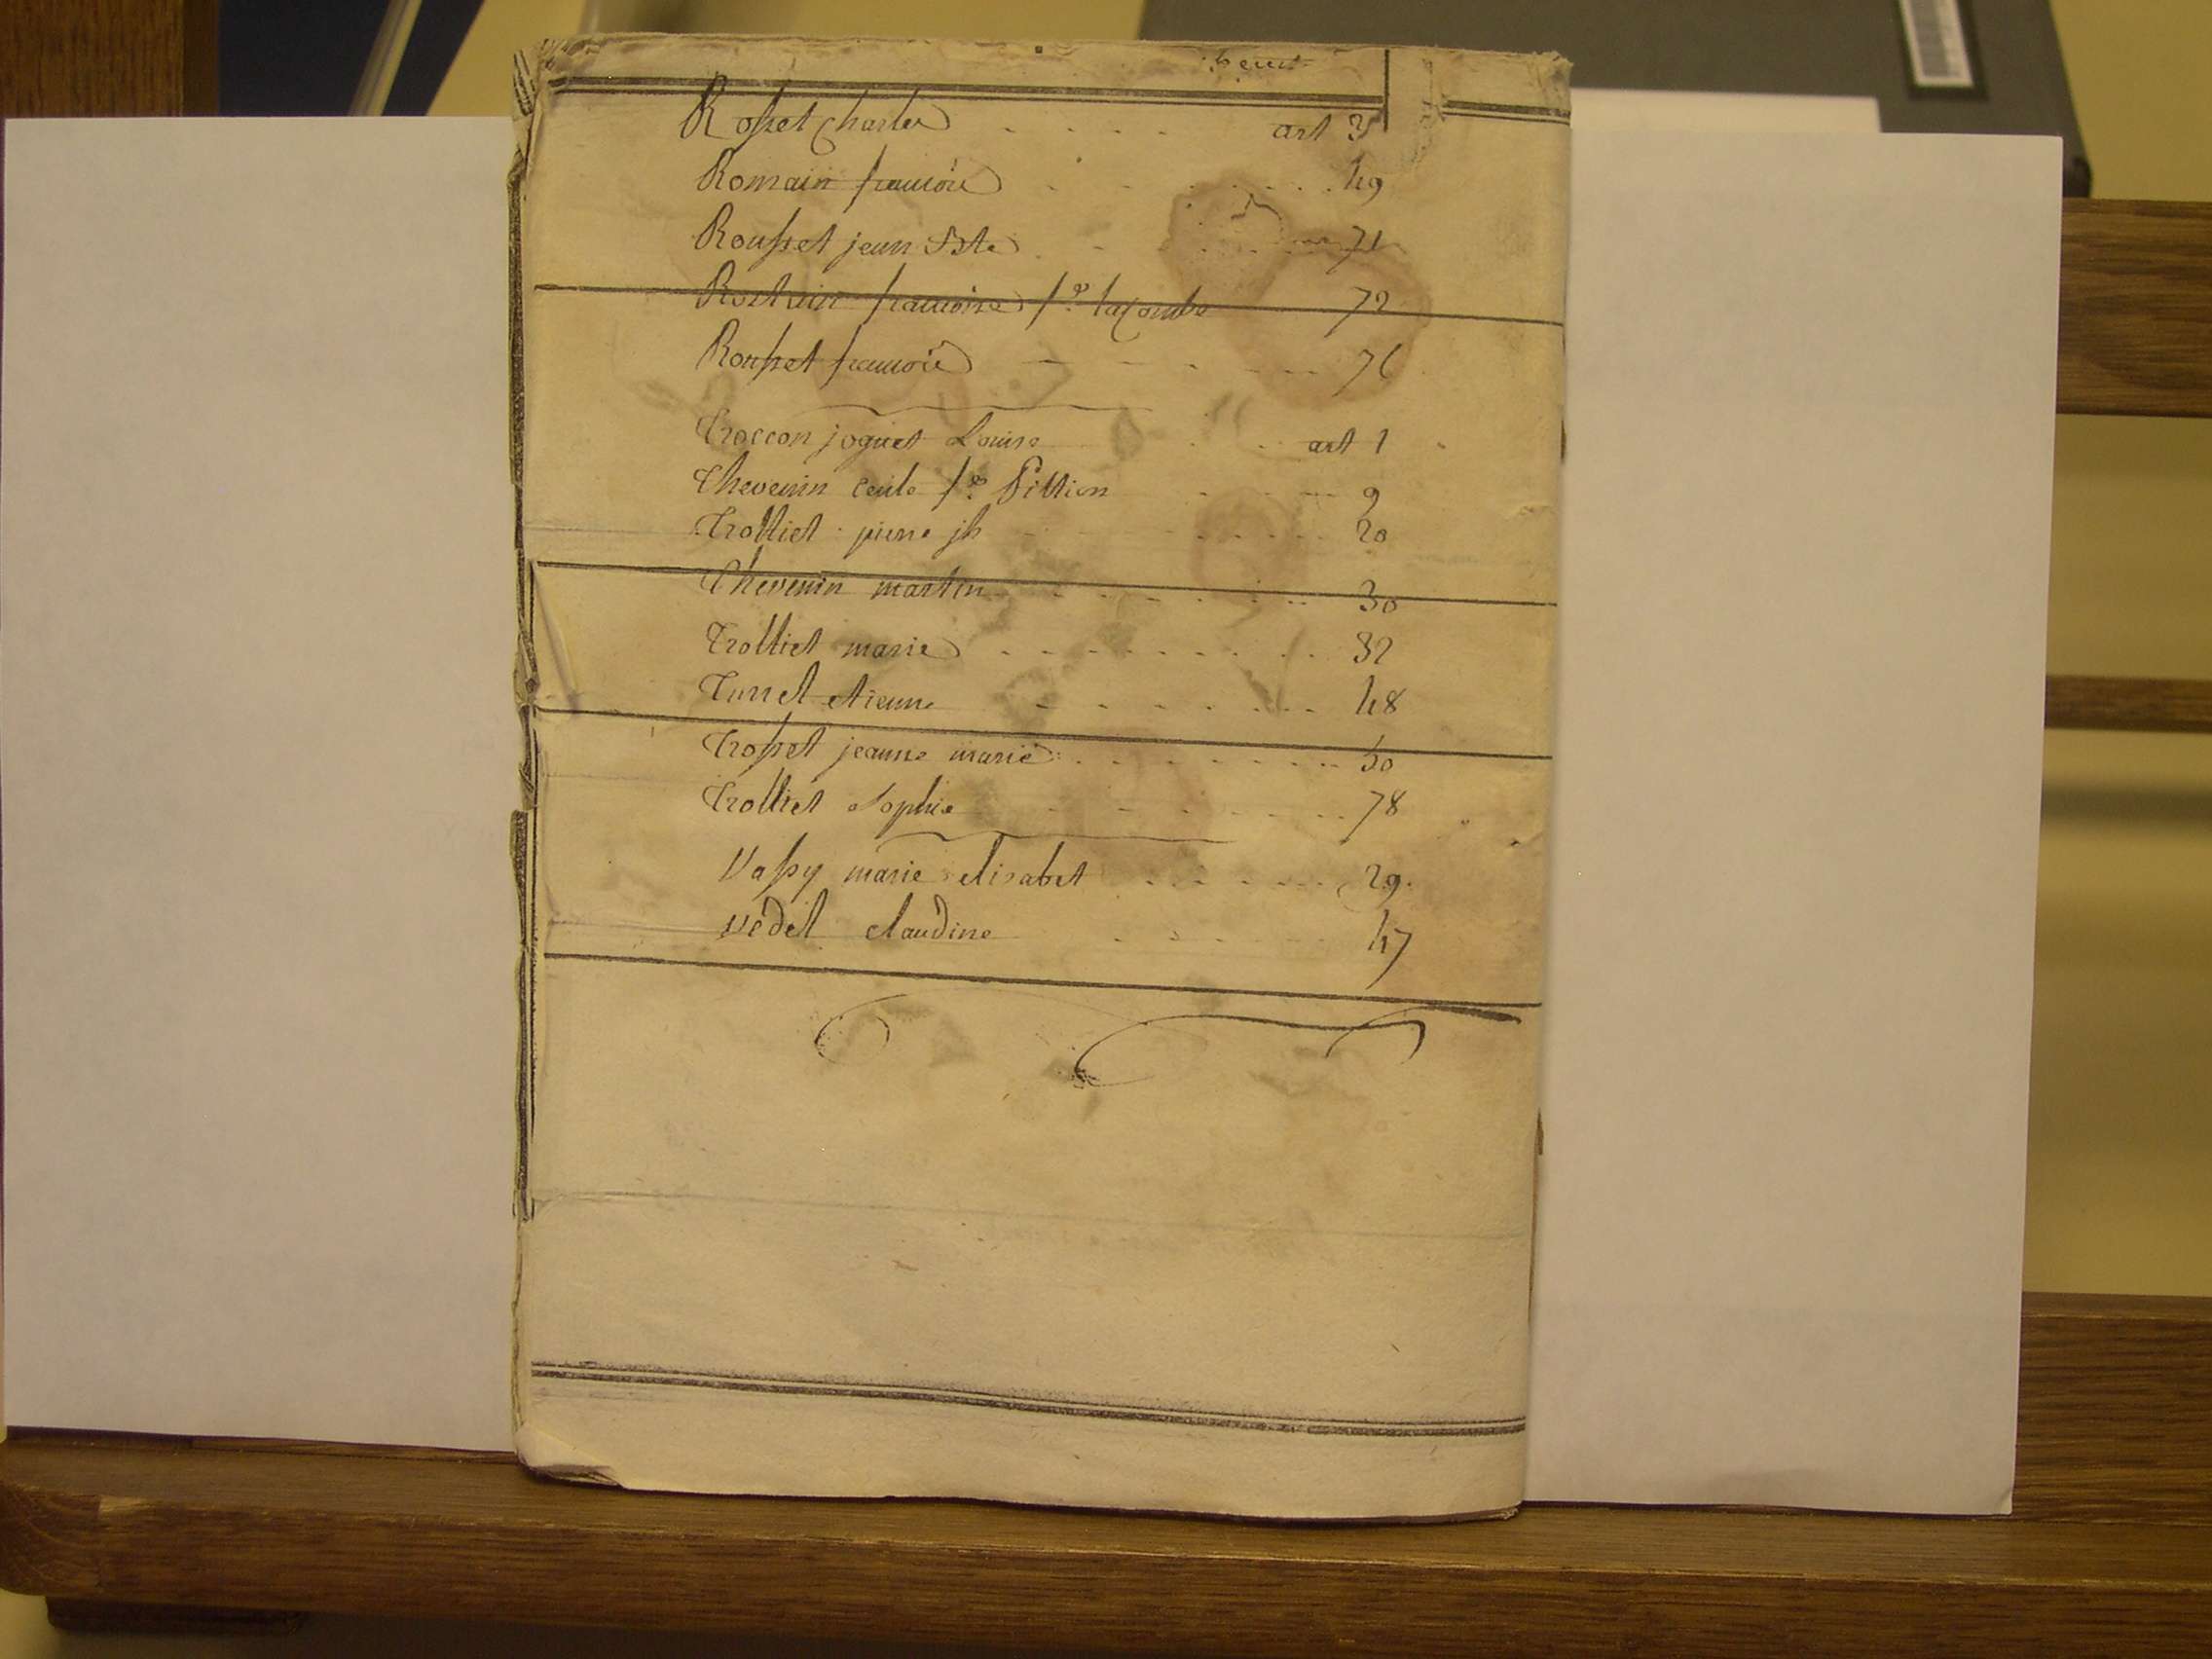 Rosset Charles . . . . art 3
Romain francois . . . . 49
Rousset jean Bte . . . . 71
francoise fe lacombe 72
Rousset francois . . . . 76
Troccon joguet Louise . . art 1
Thevenin cecile fe Pittion . . . . 9
Trolliet pierre jh . . . . 20
Thevenin martin . . . . 30
Trolliet marie . . . . 32
Turrel etienne . . . . 48
Trosset jeanne marie . . . . 50
Trolliet Sophie . . . . 78
Vassy marie elisabet . . . . 29.
védel claudine . . . . 47